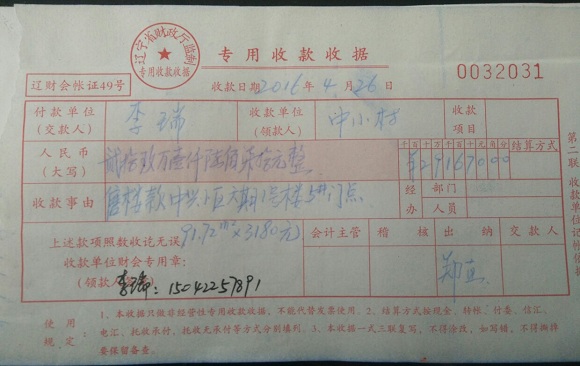 辽宁省财政厅监制
专用收款收据
专用收款收据
0032031
辽财会帐证49号
收款日期2016年4月26日
付款单位
(交款人)
李瑞
收款单位
(领款人)
中小村
收款
项目
人民币
(大写)
贰拾玖万壹仟陆佰柒拾元整
千百十万千百十元角分
¥29167000
结算方式
收款事由
售楼款中兴小区六期1号楼
经办
部门
人员
91.72m²×3180元
上述款项照数收讫无误
收款单位财会专用章:
(领款人)
李瑞:15042257891
会计主管
稽核
出纳
交款人
郑直
使用规定:
1、本收据只做非经营性专用收款收据,不能代替发票使用。2、结算方式按现金、转帐、付委、信汇、
电汇、托收承付、托收无承付等方式分别填列。3、本收据一式三联复写,不得涂改,如写错,不得撕掉
要保留备查。
第二联 收款单位记